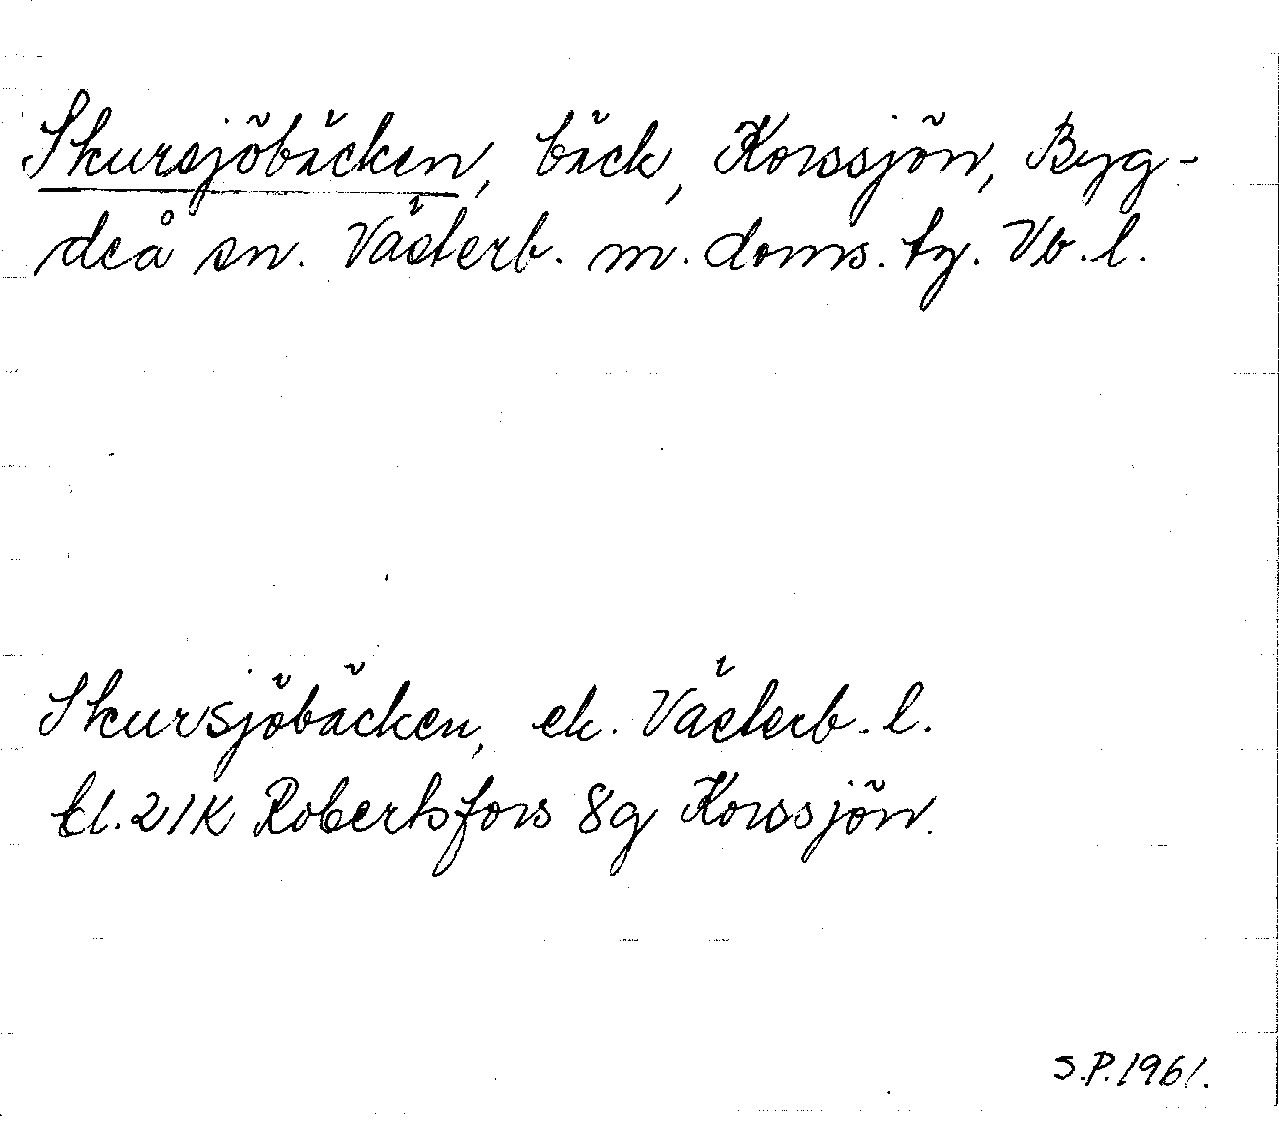 Skursjöbäcken, bäck, Korssjön, Byg-
deå sn. Västerb. m. doms. tg. Vb. l.
Skursjöbäcken, ek. Västerb. l.
bl. 21K Robertsfors 8g Korssjön.
S.P. 1961.